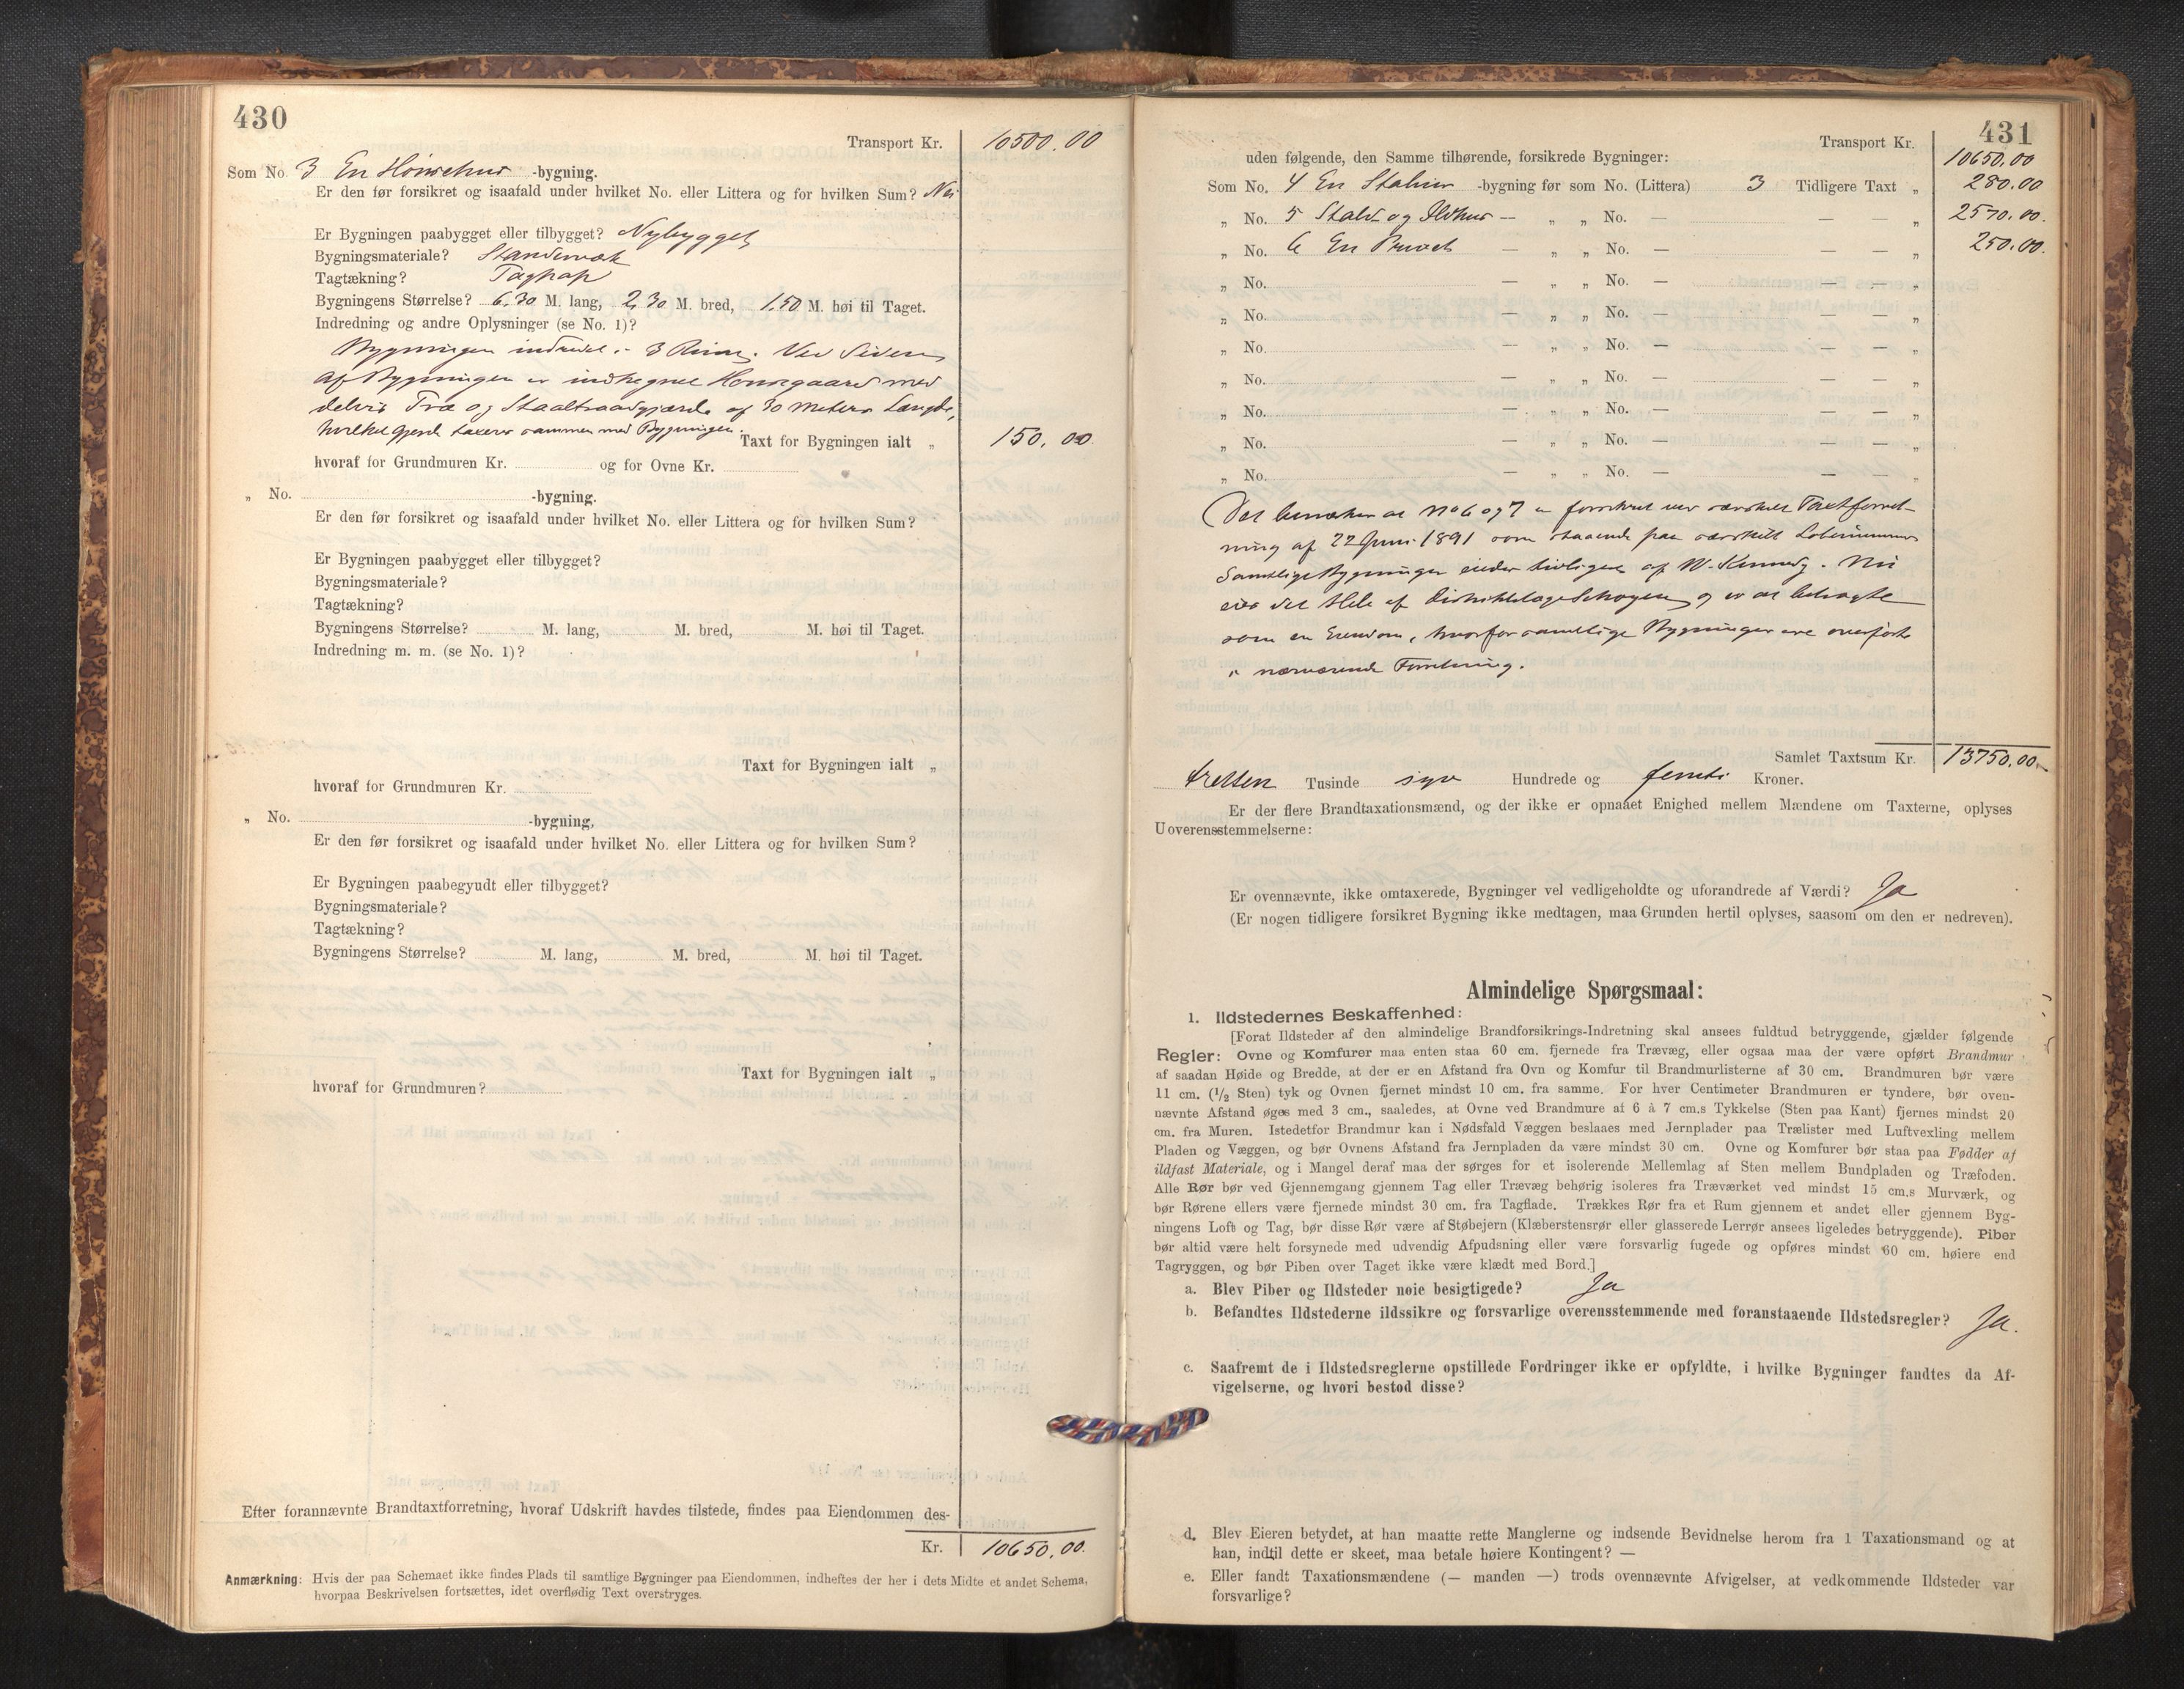 430
Transport Kr. 10500.00
Som No. 3 En Hønsehus -bygning.
Er den før forsikret og isaafald under hvilket No. eller Littera og for hvilken Sum? Nei
Er Bygningen paabygget eller tilbygget? Nybygget
Bygningsmateriale? Standervæk
Tagtækning? Tagpap
Bygningens Størrelse? 6,30 M. lang, 2,30 M. bred, 1,50 M. høi til Taget.
Indredning og andre Oplysninger (se No. 1)?
Bygningen indredet i 3 Rum. Ved Siden
af Bygningen er indhegnet Hønsegaard med
delvis Træ og Staaltraadgjærde af 30 Meters Længde,
hvilket Gjerde taxeres sammen med Bygningen.
Taxt for Bygningen ialt „ 150,00.
hvoraf for Grundmuren Kr. og for Ovne Kr.
„ No. -bygning.
Er den før forsikret og isaafald under hvilket No. eller Littera og for hvilken Sum?
Er Bygningen paabygget eller tilbygget?
Bygningsmateriale?
Tagtækning?
Bygningens Størrelse? M. lang, M. bred, M. høi til Taget.
Indredning m. m. (se No. 1)?
Taxt for Bygningen ialt „
hvoraf for Grundmuren Kr.
„ No. -bygning,
Er den før forsikret og isaafald under hvilket No. eller Littera og for hvilken Sum?
Er Bygningen paabegyudt eller tilbygget?
Bygningsmateriale?
Tagtækning?
Bygningens Størrelse? M. lang, M. bred, M. høi til Taget.
Taxt for Bygningen ialt „
hvoraf for Grundmuren?
Efter forannævnte Brandtaxtforretning, hvoraf Udskrift havdes tilstede, findes paa Eiendommen des-
Kr. 10650,00.
Anmærkning: Hvis der paa Schemaet ikke findes Plads til samtlige Bygninger paa Eiendommen, indheftes der her i dets Midte et andet Schema,
hvorpaa Beskrivelsen fortsættes, idet overflødig Text overstryges.
431
Transport Kr. 10650.00
uden følgende, den Samme tilhørende, forsikrede Bygninger:
Som No. 4 En -bygning før som No. (Littera) 3 Tidligere Taxt „ 280.00
„ No. 5 Stald og — „ „ No. — — — „ 2570.00.
„ No. 6 En Privet — „ „ No. — — — „ 250.00.
„ No. — „ „ No. — — — „
„ No. — „ „ No. — — — „
„ No. — „ „ No. — — — „
„ No. — „ „ No. — — — „
„ No. — „ „ No. — — — „
„ No. — „ „ No. — — — „
„ No. — „ „ No. — — — „
Det bemærkes at No 6 og 7 er forsikret ved særskilt Taxtforret-
ning af 22 Juni 1891 som staaende paa særskilt Løbenummer
Samtlige Bygninger eiedes tidligere af W. Kennedy. Nu
eies det Hele af Distriktslæge Schrøyer og er at betragte
som en Eiendom, hvorfor samtlige Bygninger ere overført
i nærværende Forretning.
Samlet Taxtsum Kr. 13750.00
tretten Tusinde syv Hundrede og femti Kroner.
Er der flere Brandtaxationsmænd, og der ikke er opnaaet Enighed mellem Mændene om Taxterne, oplyses
Uoverensstemmelserne:
Er ovennævnte, ikke omtaxerede, Bygninger vel vedligeholdte og uforandrede af Værdi? Ja
(Er nogen tidligere forsikret Bygning ikke medtagen, maa Grunden hertil oplyses, saasom om den er nedreven).
Almindelige Spørgsmaal:
1. Ildstedernes Beskaffenhed:
[Forat Ildsteder af den almindelige Brandforsikrings-Indretning skal ansees fuldtud betryggende, gjælder følgende
Regler: Ovne og Komfurer maa enten staa 60 cm. fjernede fra Trævæg, eller ogsaa maa der være opført Brandmur
af saadan Høide og Bredde, at der er en Afstand fra Ovn og Komfur til Brandmurlisterne af 30 cm. Brandmuren bør være
11 cm. (1/2 Sten) tyk og Ovnen fjernet mindst 10 cm. fra samme. For hver Centimeter Brandmuren er tyndere, bør oven-
nævnte Afstand øges med 3 cm., saaledes, at Ovne ved Brandmure af 6 à 7 cm.s Tykkelse (Sten paa Kant) fjernes mindst 20
cm. fra Muren. Istedetfor Brandmur kan i Nødsfald Væggen beslaaes med Jernplader paa Trælister med Luftvexling mellem
Pladen og Væggen, og bør Ovnens Afstand fra Jernpladen da være mindst 30 cm. Ovne og Komfurer bør staa paa Fødder af
ildfast Materiale, og i Mangel deraf maa der sørges for et isolerende Mellemlag af Sten mellem Bundpladen og Træfoden.
Alle Rør bør ved Gjennemgang gjennem Tag eller Trævæg behørig isoleres fra Træværket ved mindst 15 cm.s Murværk, og
bør Rørene ellers være fjernede mindst 30 cm. fra Tagflade. Trækkes Rør fra et Rum gjennem et andet eller gjennem Byg-
ningens Loft og Tag, bør disse Rør være af Støbejern (Klæberstensrør eller glasserede Lerrør ansees ligeledes betryggende). Piber
bør altid være helt forsynede med udvendig Afpudsning eller være forsvarlig fugede og opføres mindst 60 cm. høiere end
Tagryggen, og bør Piben over Taget ikke være klædt med Bord.]
a. Blev Piber og Ildsteder nøie besigtigede? Ja
b. Befandtes Ildstederne ildssikre og forsvarlige overensstemmende med foranstaaende Ildstedsregler? Ja.
c. Saafremt de i Ildstedsreglerne opstillede Fordringer ikke er opfyldte, i hvilke Bygninger fandtes da Af-
vigelserne, og hvori bestod disse?
d. Blev Eieren betydet, at han maatte rette Manglerne og indsende Bevidnelse herom fra 1 Taxationsmand og at
han, indtil dette er skeet, maa betale høiere Kontingent? —
e. Eller fandt Taxationsmændene (— manden —) trods ovennævnte Afvigelser, at vedkommende Ildsteder var
forsvarlige?